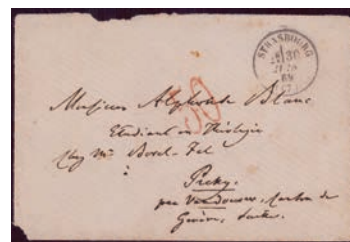 STRASBOURG
30
69
30
Monsieur Alphonse Blanc
Etudiant en Théologie
chez Mr Borel-
par Vandœuvres, Canton de
Genève, Suisse.